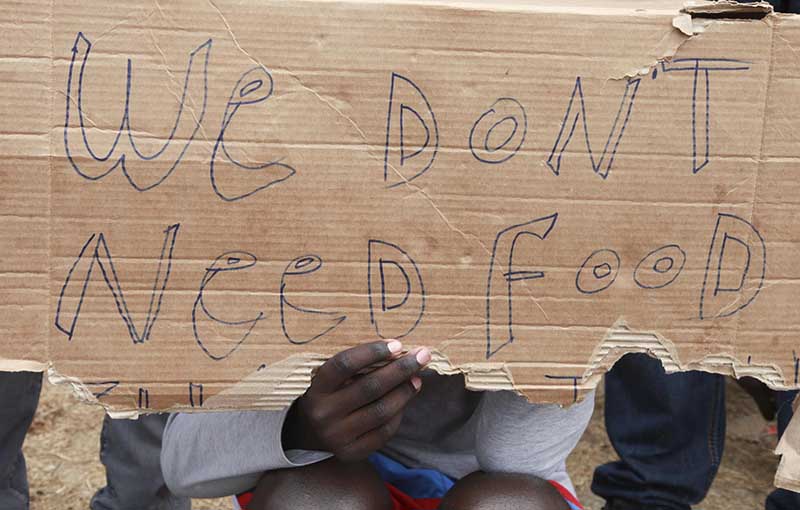 We DON'T
NeeD FOOD